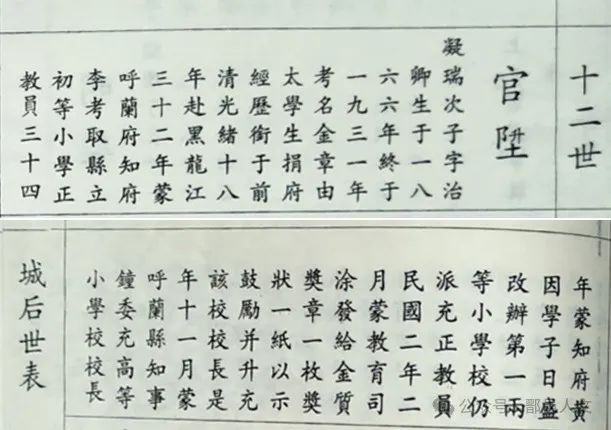 十二世
官陞
凝瑞次子字治
卿生于一八
六六年終于
一九三一年
考名金章由
太學生捐府
經歷銜于前
清光緒十八
年赴黑龍江
三十二年蒙
呼蘭府知府
李考取縣立
初等小學正
教員三十四
年蒙知府黄
因學子日盛
改辦第一兩
等小學校仍
派充正教員
民國二年二
月蒙教育司
涂發給金質
獎章一枚獎
狀一紙以示
鼓勵并升充
該校校長是
年十一月蒙
呼蘭縣知事
鐘委充高等
小學校校長
城后世表
公众号 人文